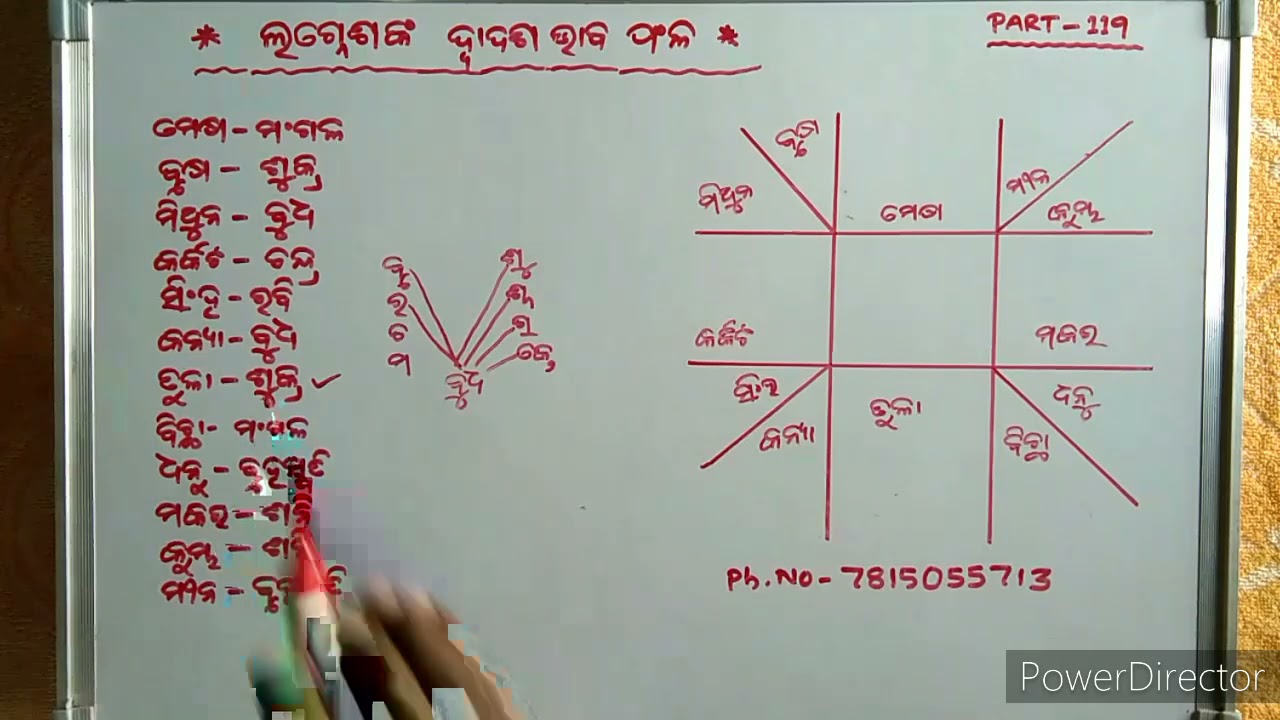 * ଲଗ୍ନେଶଙ୍କ ଦ୍ଵାଦଶ ଭାବ ଫଳ *
PART-119
ମେଷ - ମଂଗଳ
ବୃଷ - ଶୁକ୍ର
ମିଥୁନ - ବୁଧ
କର୍କଟ - ଚନ୍ଦ୍ର
ସିଂହ - ରବି
କନ୍ୟା - ବୁଧ
ତୁଳା - ଶୁକ୍ର ✓
ବିଚ୍ଛା - ମଂଗଳ
ଧନୁ - ବୃହସ୍ପତି
ମକର - ଶନି
କୁମ୍ଭ - ଶନି
ମୀନ -
ବୃ
ର
ଚ
ମ
ଶୁ
ଶ
ରା
କେ
ବୁଧ
ବୃଷ
ମୀନ
ମିଥୁନ
ମେଷ
କୁମ୍ଭ
କର୍କଟ
ମକର
ସିଂହ
ଧନୁ
କନ୍ୟା
ତୁଳା
ବିଚ୍ଛା
Ph.NO - 7815055713
PowerDirector